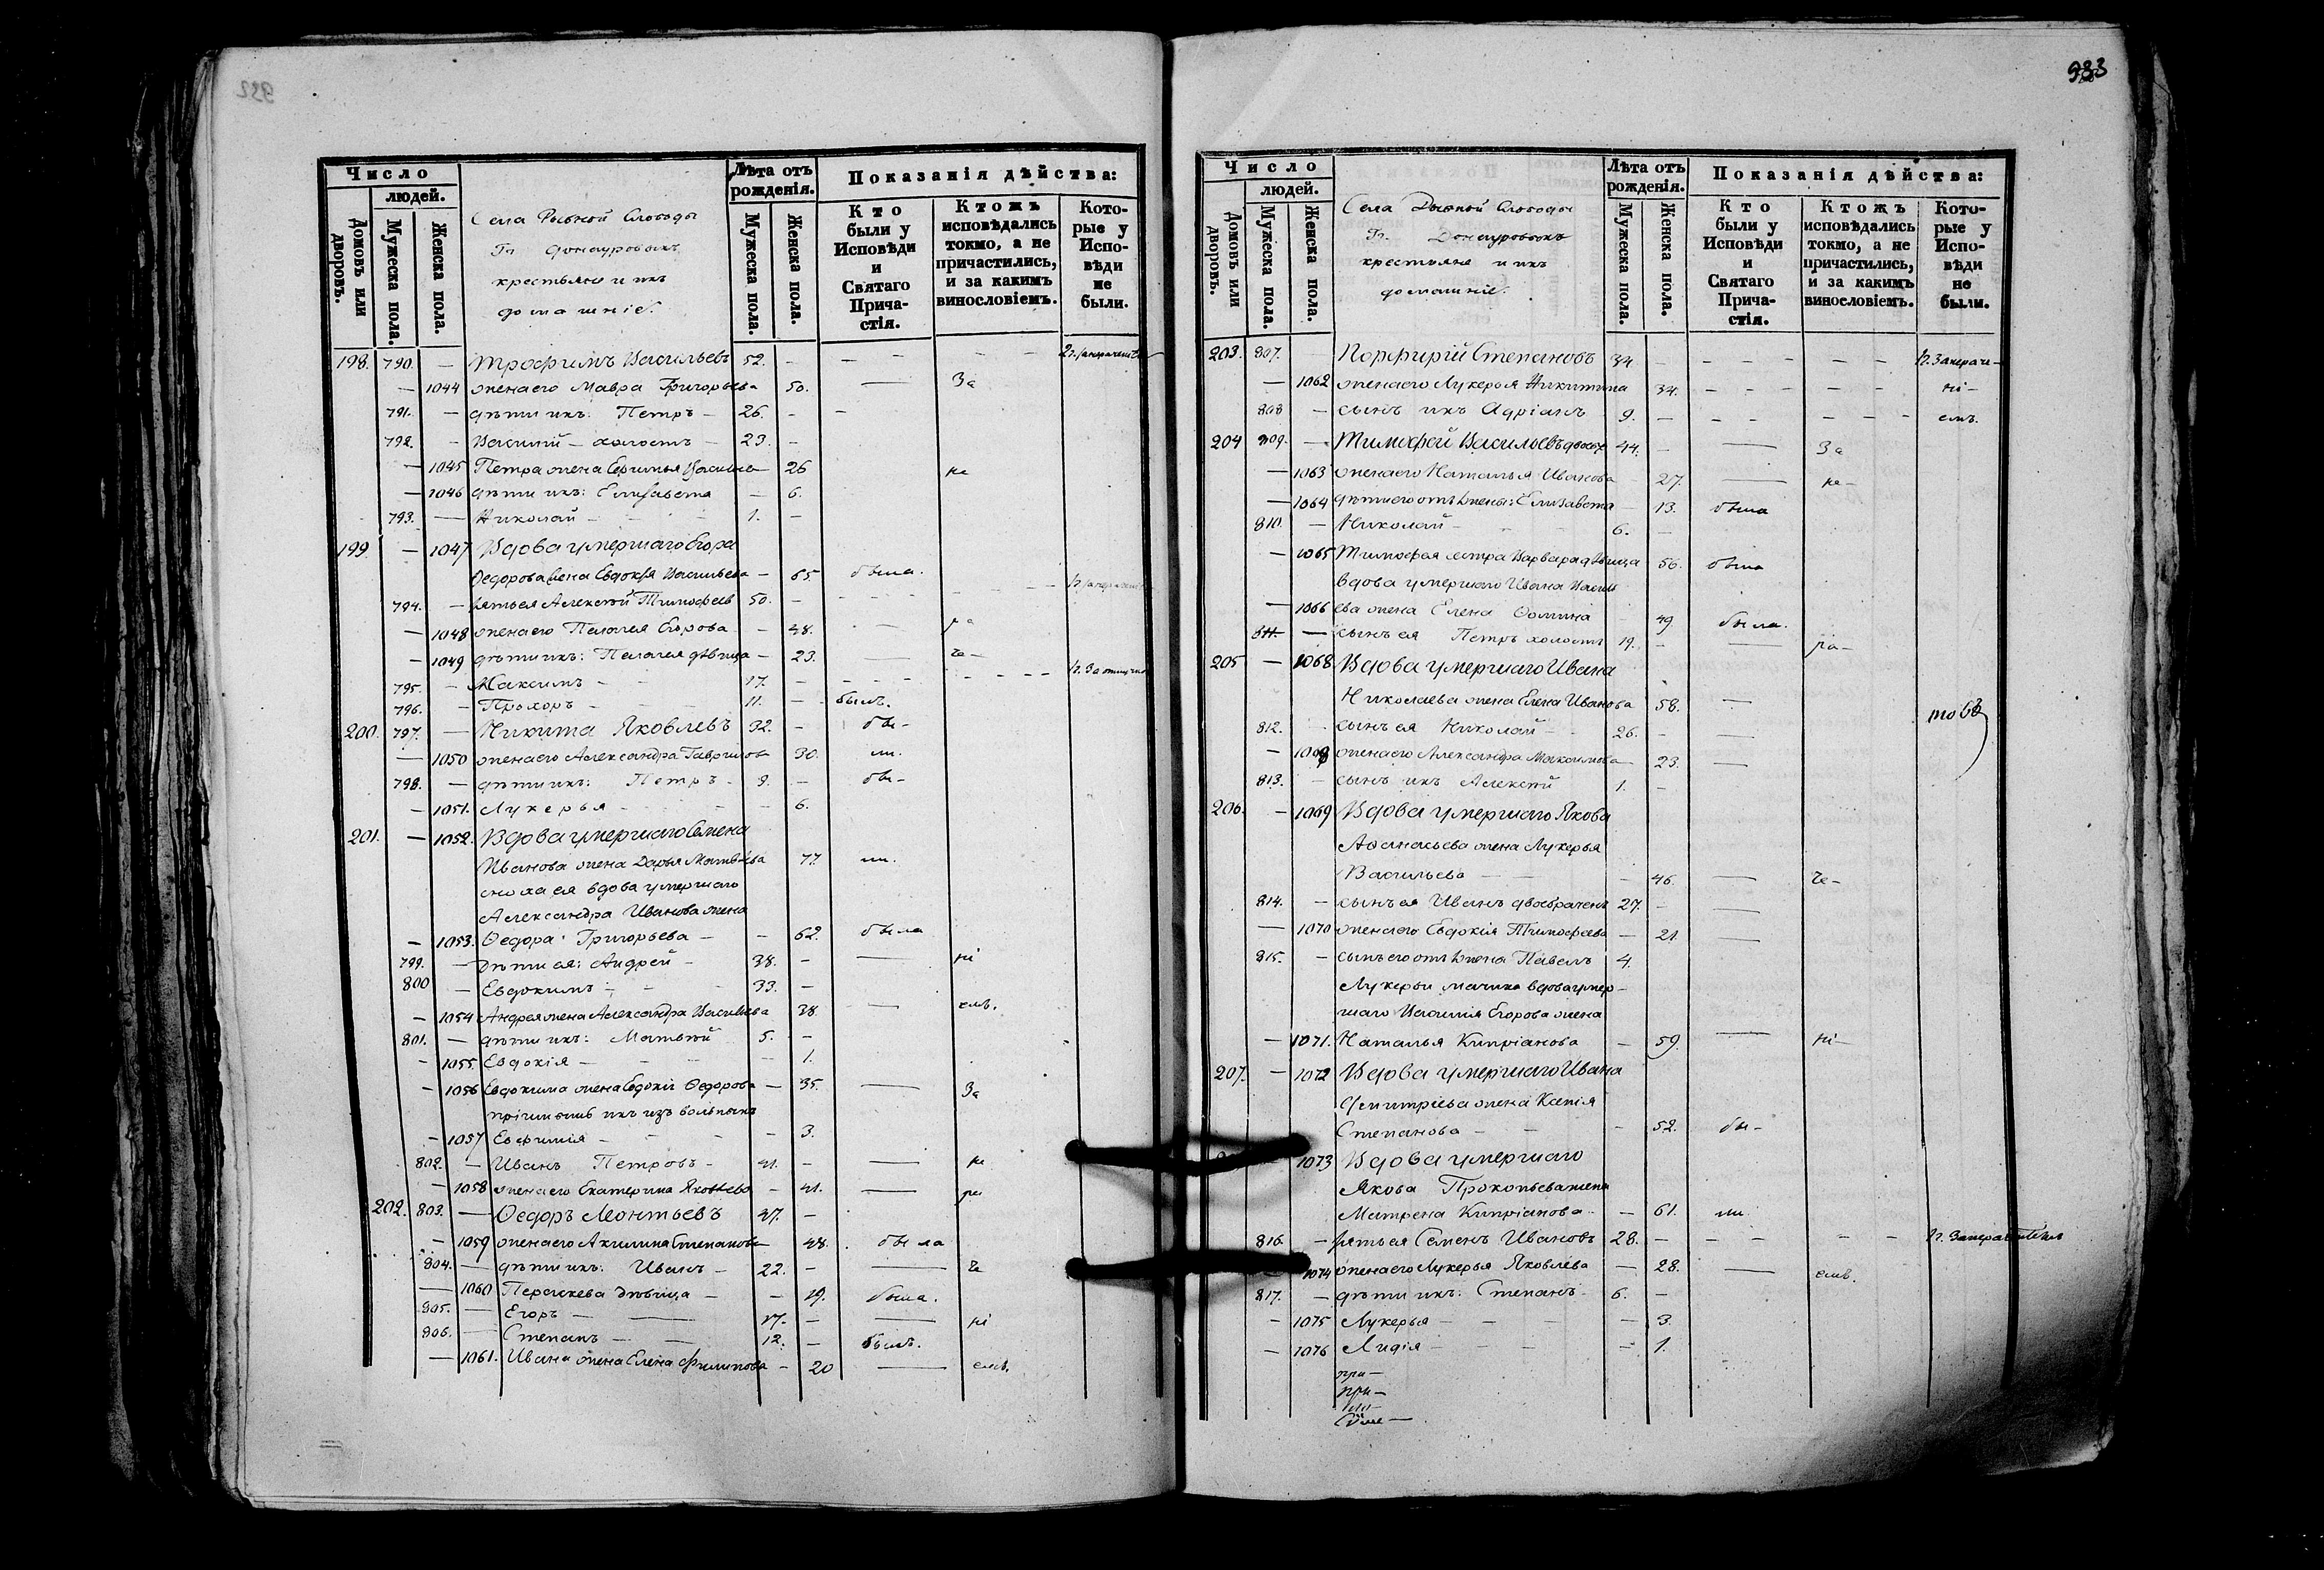 932
Число
людей.
Домовъ или дворовъ.
Мужеска пола.
Женска пола.
Села Рыбной Слободы
Гг. Донауровыхъ
крестьяне и ихъ
домашніе.
Лѣта отъ рожденія.
Мужеска пола.
Женска пола.
Показанія дѣйства:
Кто были у Исповѣди и Святаго Причастія.
Ктожъ исповѣдались токмо, а не причастились, и за какимъ винословіемъ.
Которые у Исповѣди не были.
198. 790. — Трофимъ Васильевъ 52. —
— 1044 жена его Мавра Григорьева 50. — За
791. — дѣти ихъ: Петръ — 26. — —
792. — Василий — холостъ — 23. —
— 1045 Петра жена Евфимья Васильева 26 не
— 1046 дѣти ихъ: Елизавета — 6.
793. — Николай — 1. —
199. — 1047 Вдова умершаго Егора
Федорова жена Евдокѣя Васильева — 65 была.
794. — зять ея Алексѣй Тимофеев 50. —
— 1048 жена его Пелагея Егорова — 48. —
— 1049 дѣти ихъ: Пелагея дѣвица — 23. —
795. — Максимъ — 17. —
796. — Прохоръ — 11. — былъ.
200. 797. — Никита Яковлевъ 32. — бы-
— 1050 жена его Александра Гаврилова 30. ли.
798. — дѣти ихъ: Петръ — 9. — бы-
— 1051. Лукерья — 6.
201. — 1052. Вдова умершаго Семена
Иванова жена Дарья Матвѣева 77. ли.
сноха ея вдова умершаго
Александра Иванова жена
— 1053. Федора Григорьева — — 62. была
799. — Дѣти ея: Андрей — 38. — — ні
800 — Евдокимъ — 33. —
— 1054 Андрея жена Александра Васильева 38 — емъ.
801. — дѣти ихъ: Матвѣй 5. —
— 1055 Евдокія — — 1.
— 1056 Евдокима жена Евдокія Федорова — 35. — За
ихъ изъ вольныхъ
— 1057 Евфимія — — 3.
802. — Иванъ Петровъ — 41. — — не
— 1058 жена его Екатерина Яковлева — 41. —
202. 803. — Федоръ Леонтьевъ 47. —
— 1059 жена его Акилина Степанова 48. была
804. — дѣти ихъ: Иванъ — 22. — — че
— 1060 Параскева дѣвица — — 19. была.
805. — Егоръ — 17. — — ні
806. — Степанъ — 12. — былъ.
— 1061. Ивана жена Елена Филипова — 20 — емъ.
933
Число
людей.
Домовъ или дворовъ.
Мужеска пола.
Женска пола.
Села Рыбной Слободы
Гг. Донауровыхъ
крестьяне и ихъ
домашніе.
Лѣта отъ рожденія.
Мужеска пола.
Женска пола.
Показанія дѣйства:
Кто были у Исповѣди и Святаго Причастія.
Ктожъ исповѣдались токмо, а не причастились, и за какимъ винословіемъ.
Которые у Исповѣди не были.
203. 807. Порфирій Степановъ 34 —
— 1062 жена его Лукерья Никитина 34. — ні —
808 — сынъ ихъ Адріанъ 9. — емъ.
204 809. — Тимофей Васильевъ 44. — — За
— 1063 жена его Наталья Иванова 27. — не —
— 1064 дѣти его отъ 1 жены: Елизавета — 13. была
810. — Николай — 6. —
— 1065 Тимофея сестра Варвара дѣвица 56. была
вдова умершаго Ивана Василь
— 1066 ева жена Елена Фомина 49. была.
811. — сынъ ея Петръ холостъ 19. — —
205 — 1068 Вдова умершаго Ивана
Николаева жена Елена Иванова 58. —
812. сынъ ея Николай — 26. — —
— жена его Александра Максимова 23. —
813. — сынъ ихъ Алексѣй 1. —
206. — 1069 Вдова умершаго Якова
Афанасьева жена Лукерья
Васильева — — — 46. — че —
814. — сынъ ея Иванъ двоебраченъ 27. — —
— 1070 жена его Евдокія Тимофеева — 21. —
815. — сынъ его отъ 1 жены Павелъ 4.
Лукерьи мачиха вдова умер —
шаго Василія Егорова жена
— 1071. Наталья Кипріанова — 59. — ні —
207. — 1072 Вдова умершаго Ивана
Дмитріева жена Ксенія
Степанова — — — 52. бы —
1073 Вдова умершаго
Якова Прокопьева жена
Матрена Кипріанова — — 61. ли
816. — зять ея Семенъ Ивановъ 28. —
1074 жена его Лукерья Яковлева — 28. — емъ.
817. — дѣти ихъ: Степанъ — 6. —
— 1075 Лукерья — — 3.
— 1076 Лидія — — 1.
при —
при —